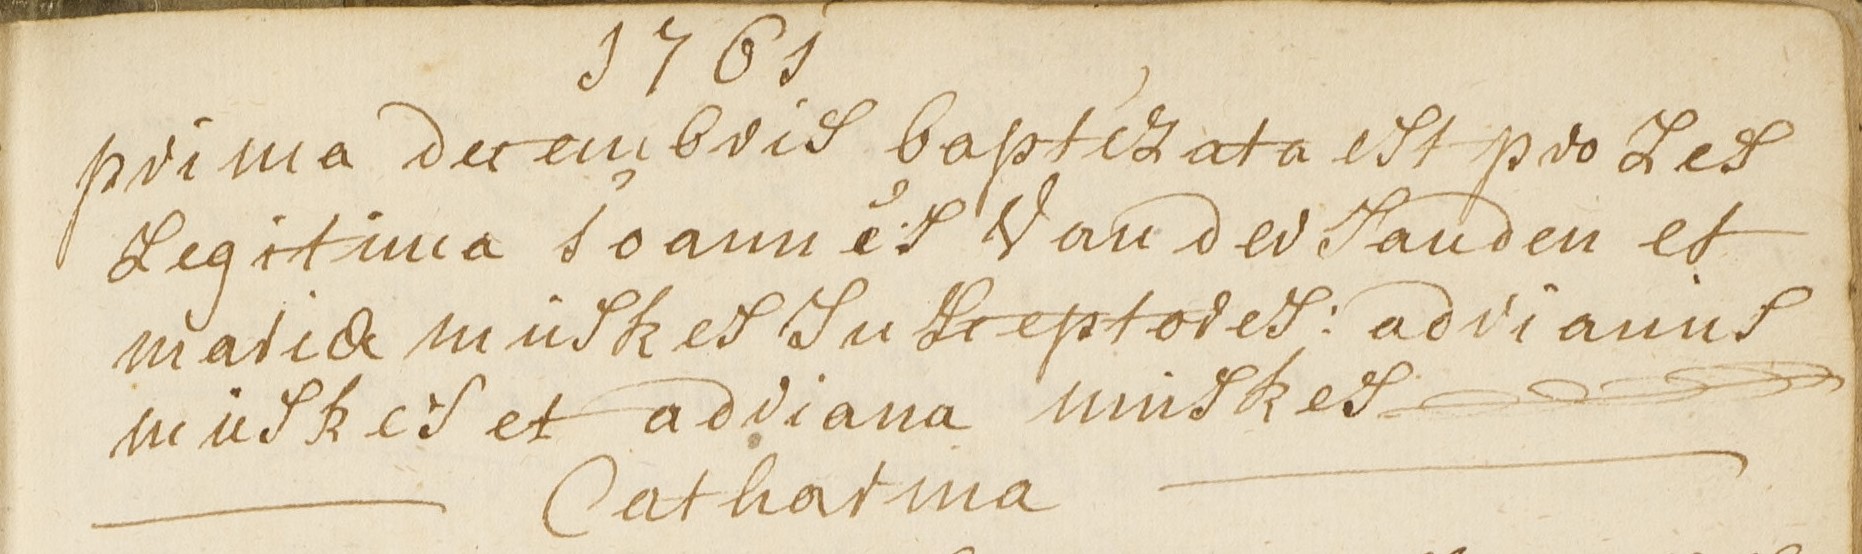 1761
prima decembris baptizata est proles
Legitima Joannes Van der Sanden et
mariæ muskes Susceptores: adrianus
muskes et adriana muskes
Catharina